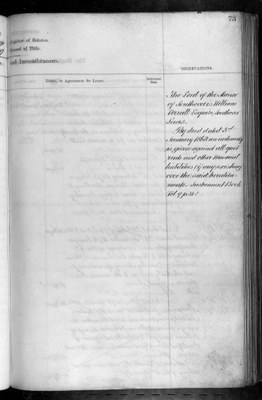 73
Register of Estates.
Record of Title.
and Incumbrances.
OBSERVATIONS.
Leases, or Agreements for Leases.
The Lord of the Manor
of Southover is William
Verrall Esquire, Southover
Lewes.
By deed dated 3rd
January 1863 an indemnity
is given against all quit
rents and other manorial
liabilities (if any) existing
over the said heredita-
ments. Instrument Book
Vol 9 p.